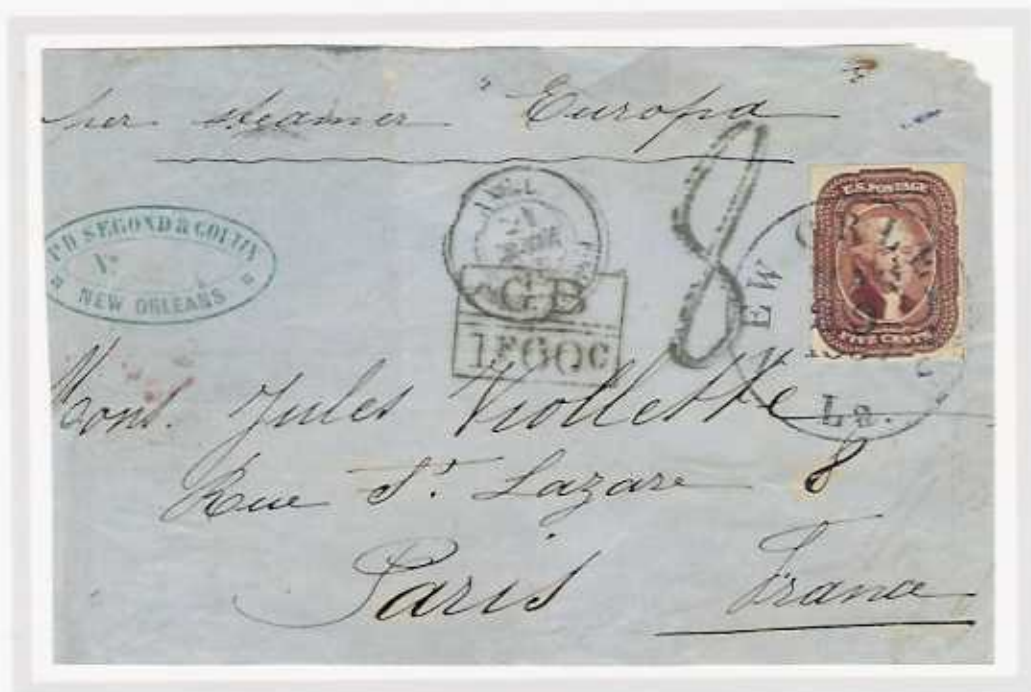 per steamer "Europa"
P. D. SEGOND & GOUZIN
NEW ORLEANS
GB
1F60C
8
U.S. POSTAGE
FIVE CENTS
EW OR
La.
Mons. Jules Viollette
Rue St. Lazare 8
Paris France